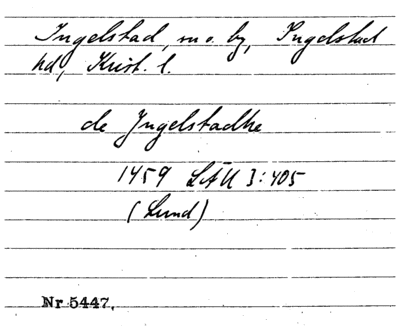 Ingelstad, m o. by, Ingelstad
hd, Krist. l.
de Jngelstadhe
1459 LÄU 3:405
(Lund)
Nr 5447.